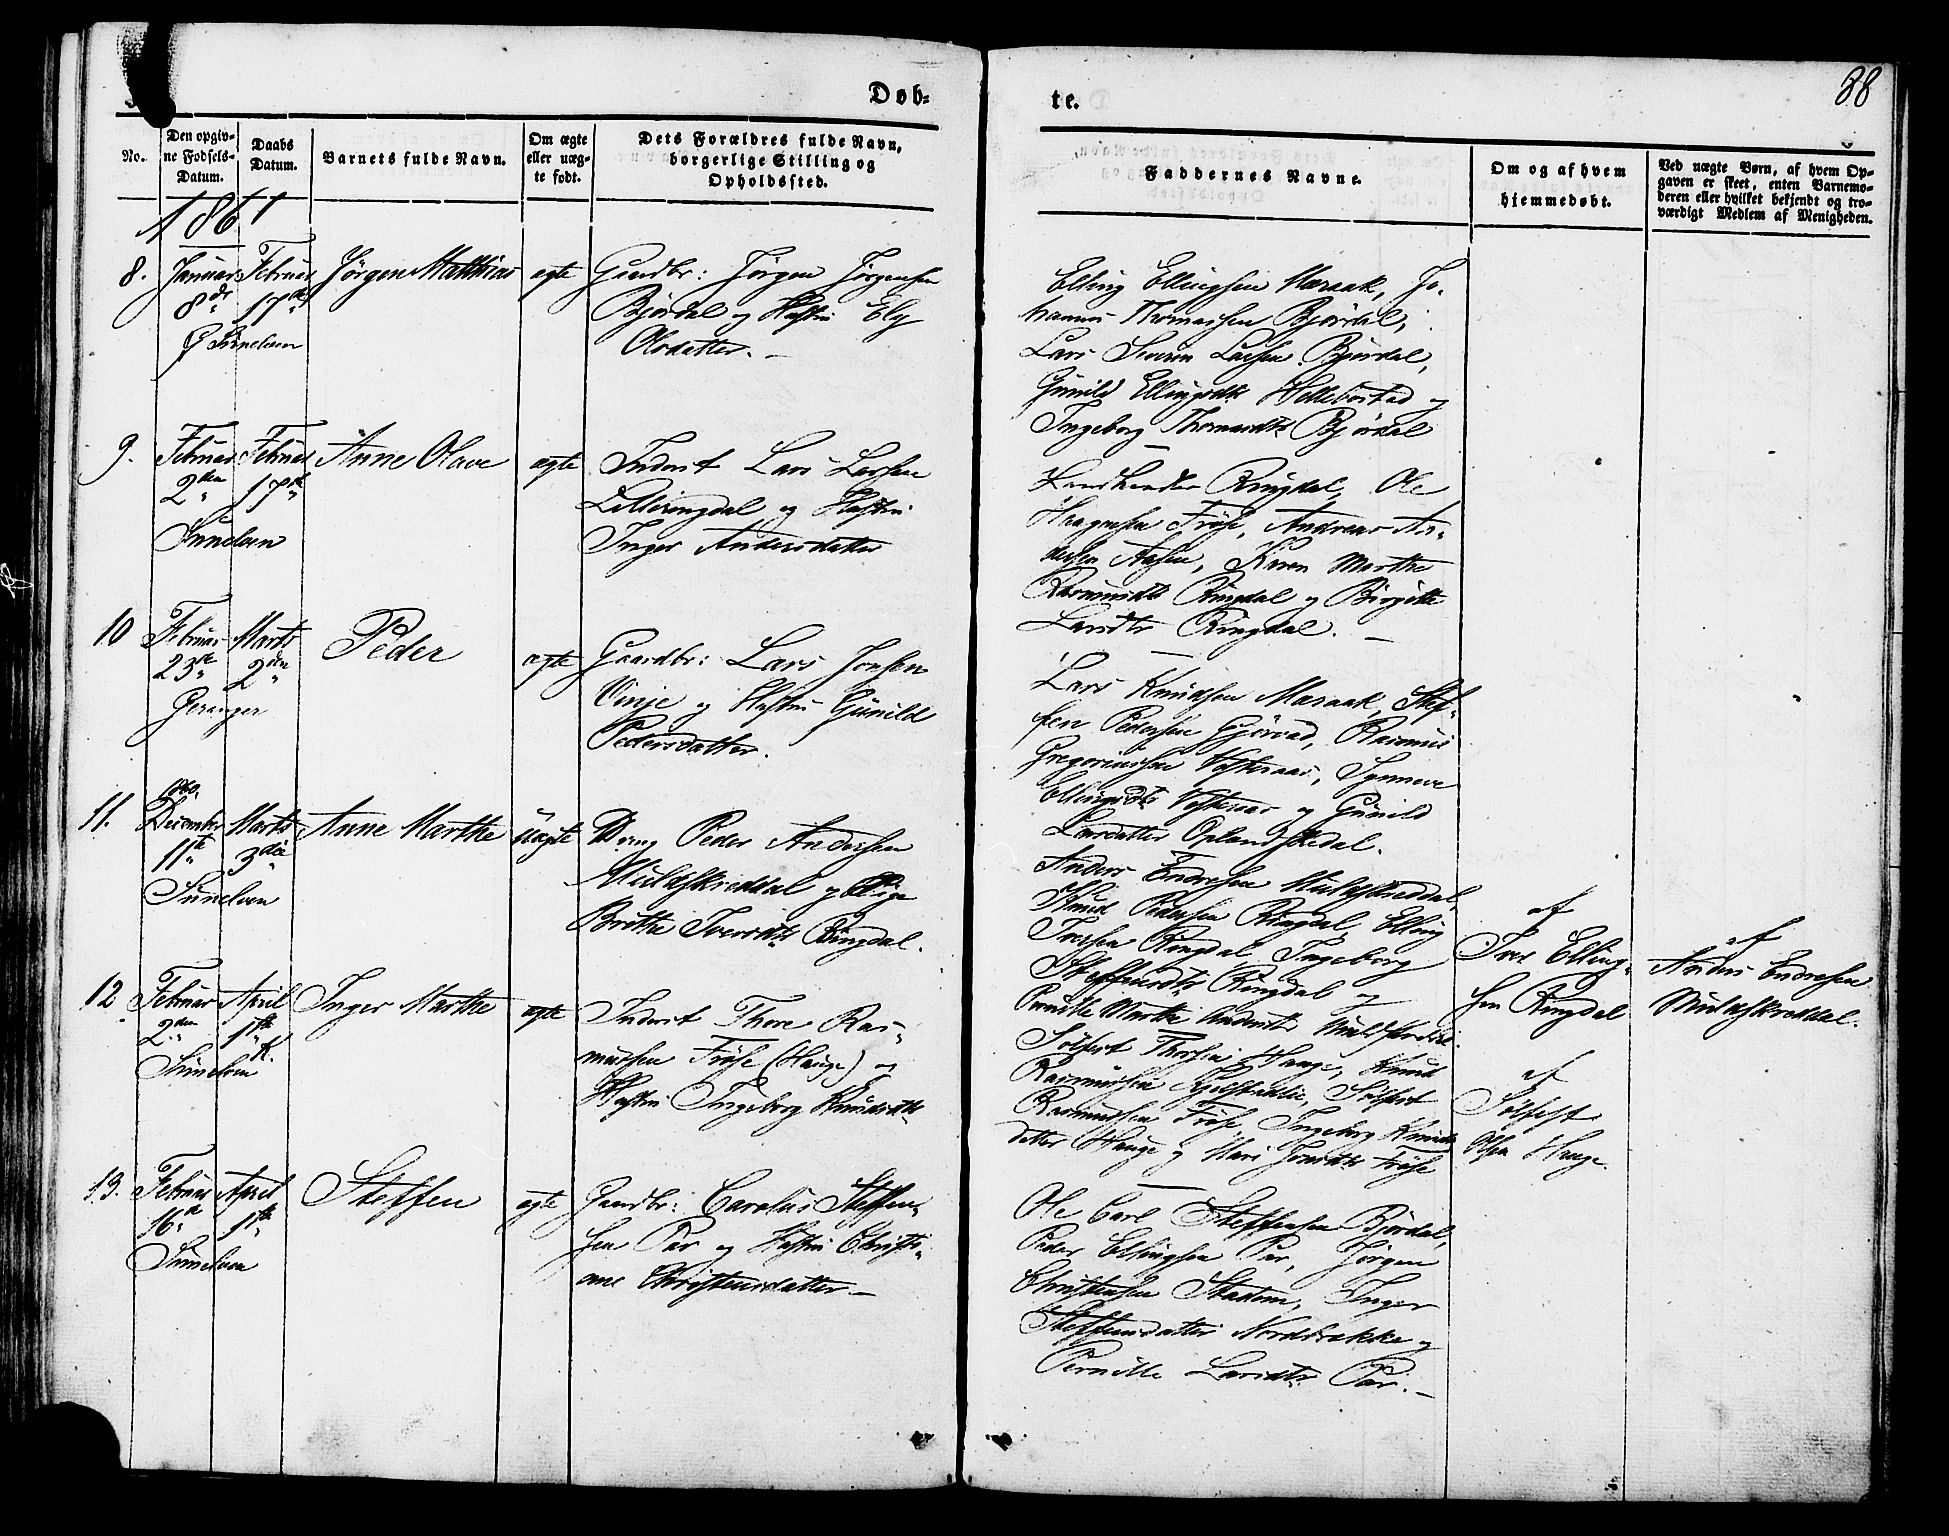 Døb=
te.
88
No.
Den opgiv=
ne Fødsels=
Datum.
Daabs
Datum.
Barnets fulde Navn.
Om ægte
eller uæg=
te født.
Dets Forældres fulde Navn,
borgerlige Stilling og
Opholdssted.
Faddernes Navne.
Om og af hvem
hjemmedøbt.
Ved uægte Børn, af hvem Op=
gaven er skeet, enten Barnemo=
deren eller hvilket bekjendt og tro=
værdigt Medlem af Menigheden.
1861
8.
Januar
8de
Sunelven
Februar
17de
Jørgen Matthias
ægte
Gaardbr: Jørgen Jørgensen
Bjørdal og Hustru Ely
Olsdatter. -
Elling Ellingsen Maraak, Jo-
hannes Thomassen Bjørdal,
Lars Severin Larsen Bjørdal,
Gunild Ellingsdtr Hellebostad og
Ingeborg Thomasdtr Bjørdal
9.
Februar
2den
Sunelven
Februar
17de
Anne Olave
ægte
Inderst Lars Larsen
Lilleringdal og Hustru
Inger Andersdatter
Ringdal, Ole
Haagensen Frøse, Andreas An-
dersen Aasen, Karen Marthe
Rasmusdtr Ringdal og Birgitte
Larsdtr Ringdal. -
10
Februar
23de
Geranger
Marts
2den
Peder
ægte
Gaardbr: Lars Jonsen
Vinje og Hustru Gunild
Pedersdatter.
Lars Knudsen Maraak, Stef-
fen Pedersen Gjørvad, Rasmus
Gregoriussen Vesteraas, Synneve
Ellingsdtr Vesteraas og Gunild
Larsdatter Oplendskedal.
11.
1860.
December
11te
Sunelven
Marts
3die
Anne Marthe
uægte
Dreng Peder Andersen
Muldskreddal og Pige
Brithe Iversdtr Ringdal.
Anders Endresen Muldskreddal,
Knud Pedersen Ringdal, Elling
Iversen Ringdal, Ingeborg
Steffensdtr Ringdal og
Pernille Marthe Andersdtr Muldskreddal.
af
Iver Elling-
sen Ringdal
af
Anders Endresen
Muldskreddal.
12
Februar
2den
Sunelven
April
1ste
Inger Marthe
ægte
Inderst Thore Ras-
mussen Frøse (Hauge) og
Hustru Ingeborg Knudsdtr
Sølfest Thoresen Hauge, Knud
Rasmussen Kjelstadlie, Sølfest
Rasmussen Frøse, Ingeborg Knuds-
datter Hauge og Mari Jonsdtr Frøse
af
Sølfest
Olsen Hauge.
13.
Februar
16de
Sunelven
April
1ste
Steffen
ægte
Gaardbr: Carolus Steffen-
sen Par og Hustru Christi-
ane Christensdatter. -
Ole Carl Steffensen Bjørdal,
Peder Ellingsen Par, Jørgen
Christensen Stadem, Inger
Steffensdatter Norddrakke og
Pernille Larsdtr Par. -